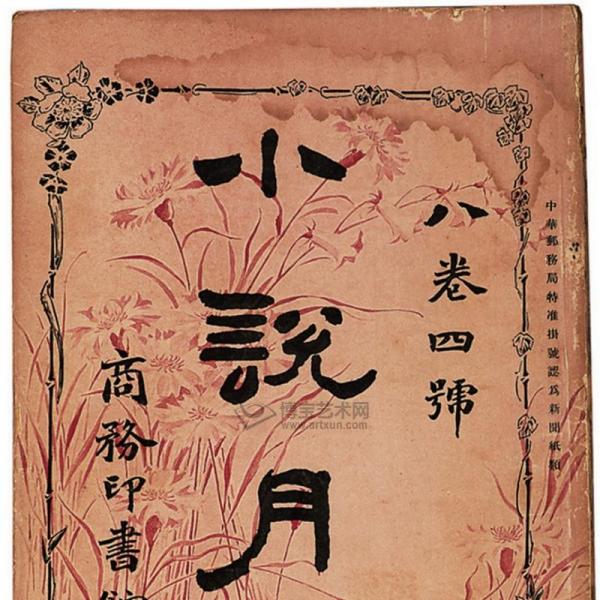 中華郵務局特准掛號認爲新聞紙類
八卷四號
小說月
商務印書館
博宝艺术网
www.artxun.com